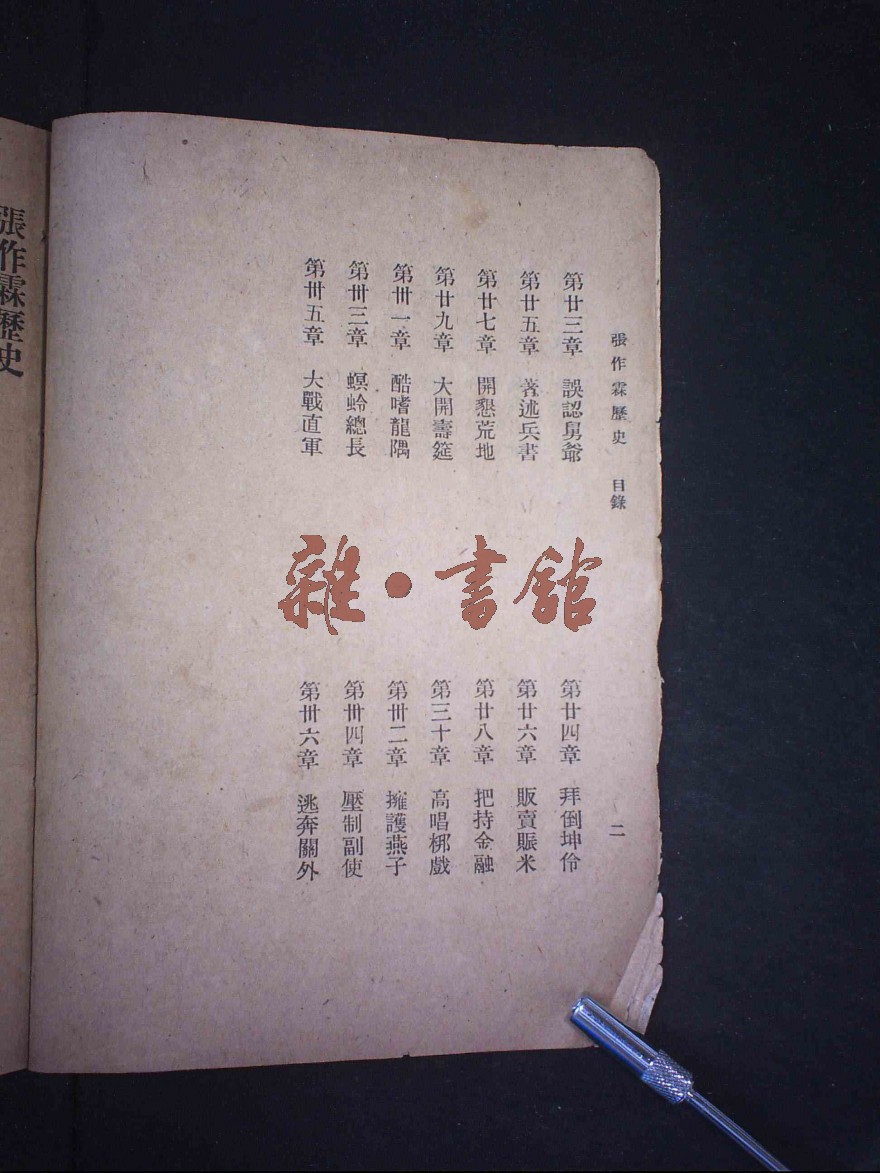 張作霖歷史 目錄 二
第廿三章 誤認舅爺
第廿四章 拜倒坤伶
第廿五章 著述兵書
第廿六章 販賣賑米
第廿七章 開懇荒地
第廿八章 把持金融
第廿九章 大開壽筵
第三十章 高唱梆戲
第卅一章 酷嗜龍陽
第卅二章 擁護燕子
第卅三章 螟蛉總長
第卅四章 壓制副使
第卅五章 大戰直軍
第卅六章 逃奔關外
雜·書館
張作霖歷史